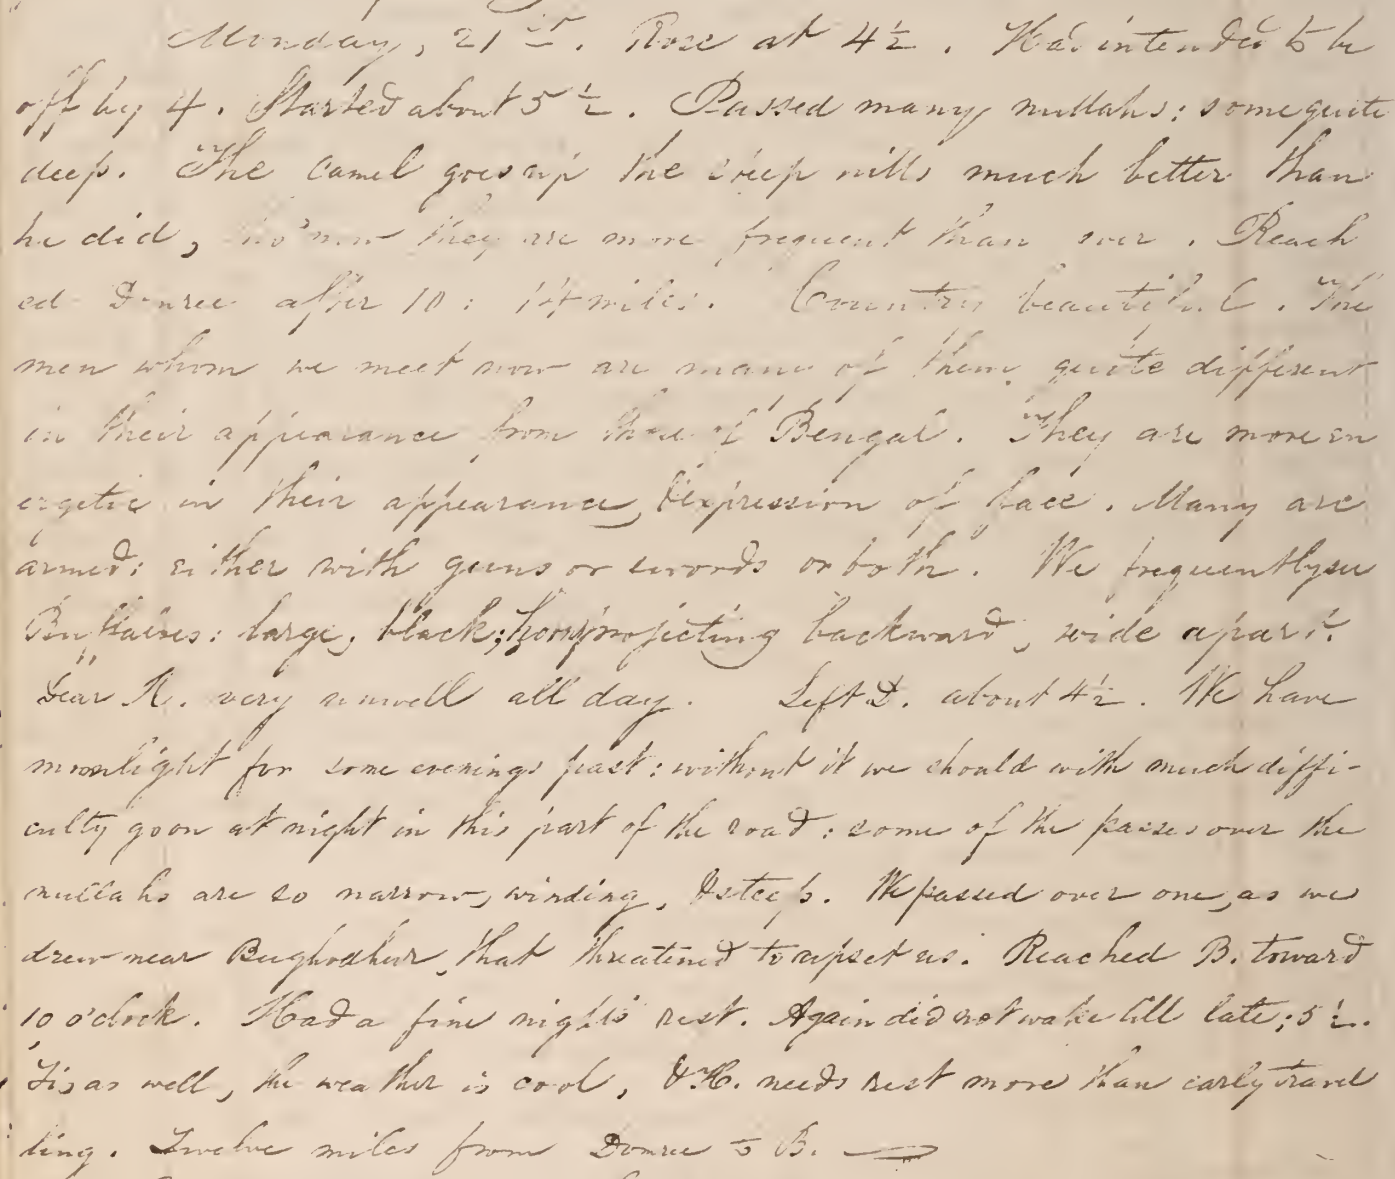 Monday, 21st. Rose at 4½. Had intended to be
off by 4. Started about 5½. Passed many nullahs: some quite
deep. The camel goes up the steep hills much better than
he did, tho' now they are more frequent than ever. Reach
ed Dumree after 10: 14 miles. Country beautiful. The
men whom we meet now are many of them quite different
in their appearance from those of Bengal. They are more en
ergetic in their appearance, & expression of face. Many are
armed: either with guns or swords or both. We frequently see
Buffaloes: large, black; horns projecting backward, wide apart.
Dear R. very unwell all day. Left D. about 4½. We have
moonlight for some evenings past: without it we should with much diffi-
culty go on at night in this part of the road: some of the passes over the
nullahs are so narrow, winding, & steep. We passed over one, as we
drew near Bughodhur, that threatened to upset us. Reached B. toward
10 o'clock. Had a fine night's rest. Again did not wake till late; 5½.
'Tis as well, the weather is cool, & R. needs rest more than early travel
ling. Twelve miles from Dumree to B.